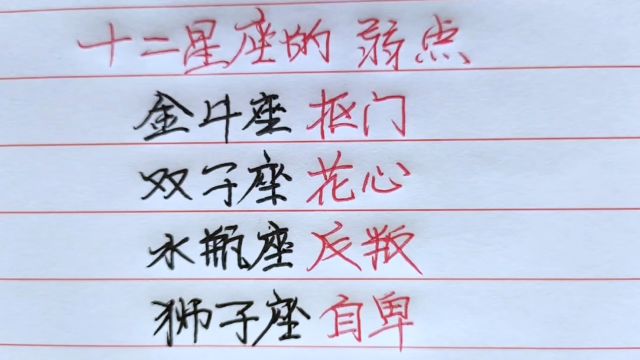 十二星座的 弱点
金牛座 抠门
双子座 花心
水瓶座 反叛
狮子座 自卑